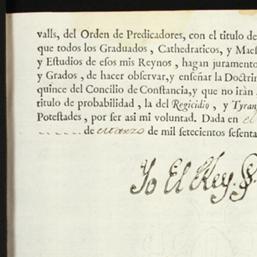 valls, del Orden de Predicadores, con el titulo de
que todos los Graduados, Cathedraticos, y Maes
y Estudios de esos mis Reynos, hagan juramento
y Grados, de hacer observar, y enseñar la Doctrin
quince del Concilio de Constancia, y que no iràn
titulo de probabilidad, la del Regicidio, y Tyran
Potestades, por ser asi mi voluntad. Dada en el
de marzo de mil setecientos sesenta
Yo El Rey.